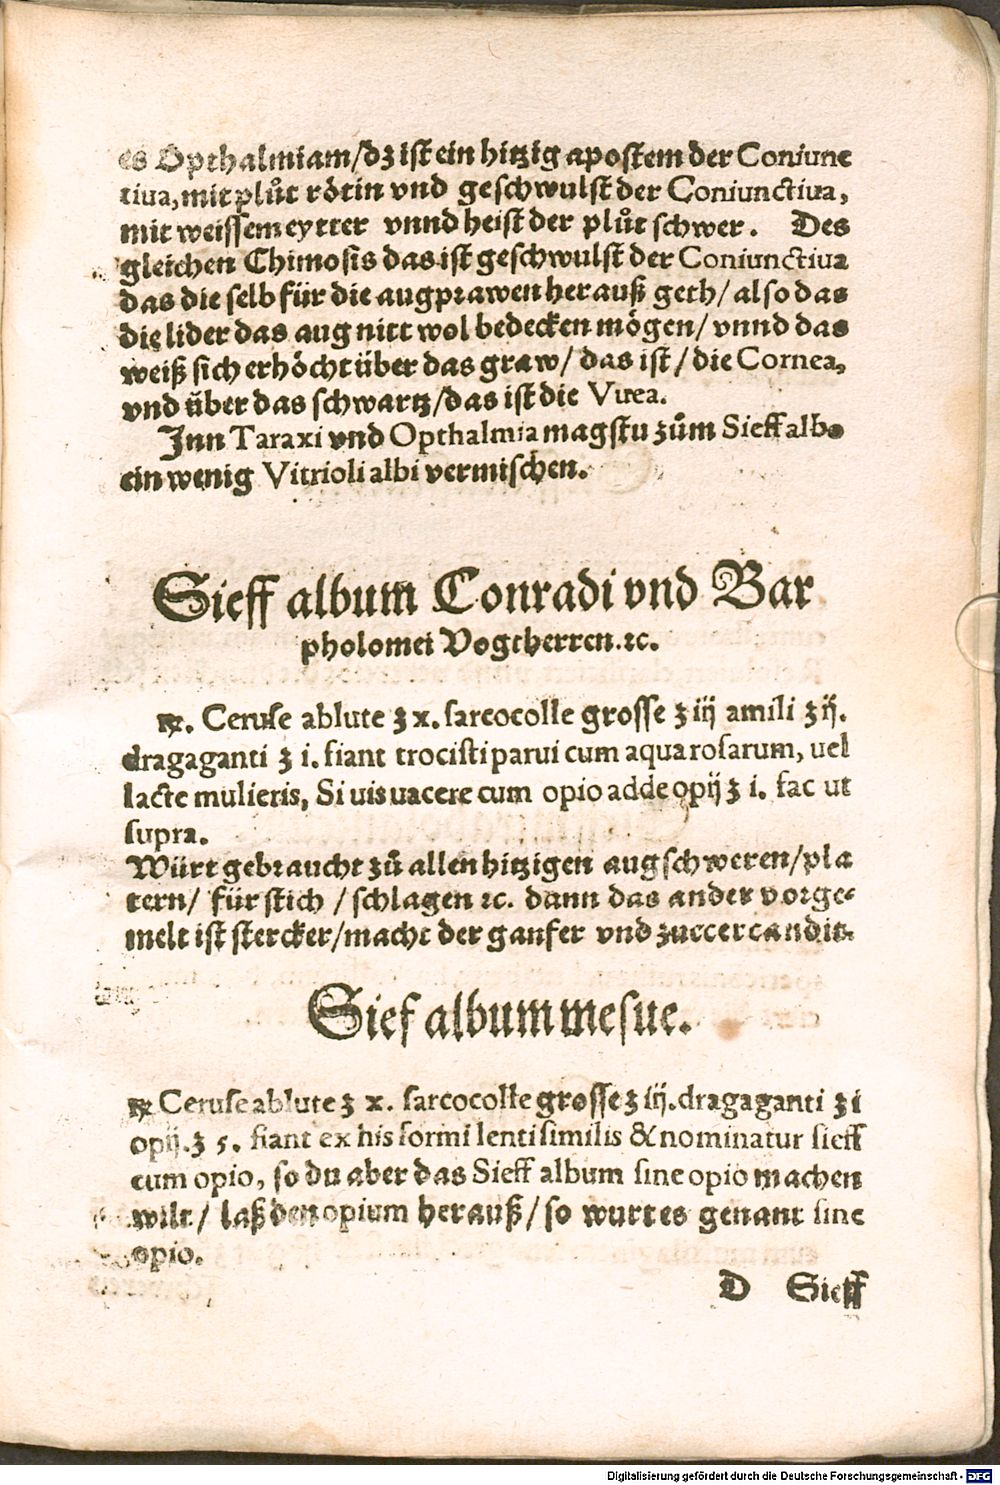 es Opthalmiam/dz ist ein hitzig apostem der Coniunc
tiua, mit plůt rötin vnd geschwulst der Coniunctiua,
mit weissem eytter vnnd heist der plůt schwer. Des
gleichen Chimosis das ist geschwulst der Coniunctiua
das die selb für die augprawen herauß geth/ also das
die lider das aug nitt wol bedecken mögen/ vnnd das
weiß sich erhöcht über das graw/ das ist/ die Cornea,
vnd über das schwartz/das ist die Vuea.
Jnn Taraxi vnd Opthalmia magstu zům Sieff albo
ein wenig Vitrioli albi vermischen.
Sieff album Conradi vnd Bar
pholomei Vogtherren.ꝛc.
℞. Ceruse ablute ʒ x. sarcocolle grosse ʒ iij amili ʒ ij.
dragaganti ʒ i. fiant trocisti parui cum aqua rosarum, uel
lacte mulieris, Si uis uacere cum opio adde opij ʒ i. fac ut
supra.
Würt gebraucht zů allen hitzigen augschweren/pla
tern/ für stich / schlagen ꝛc. dann das ander vorge⸗
melt ist stercker/macht der gaufer vnd zuccer candit.
Sief album mesue.
℞ Ceruse ablute ʒ x. sarcocolle grosse ʒ iij. dragaganti ʒ i
opij. ʒ 5. fiant ex his formi lenti similis & nominatur sieff
cum opio, so du aber das Sieff album sine opio machen
wilt/ laß den opium herauß/ so wurt es genant sine
opio.
D Sieff
Digitalisierung gefördert durch die Deutsche Forschungsgemeinschaft - DFG